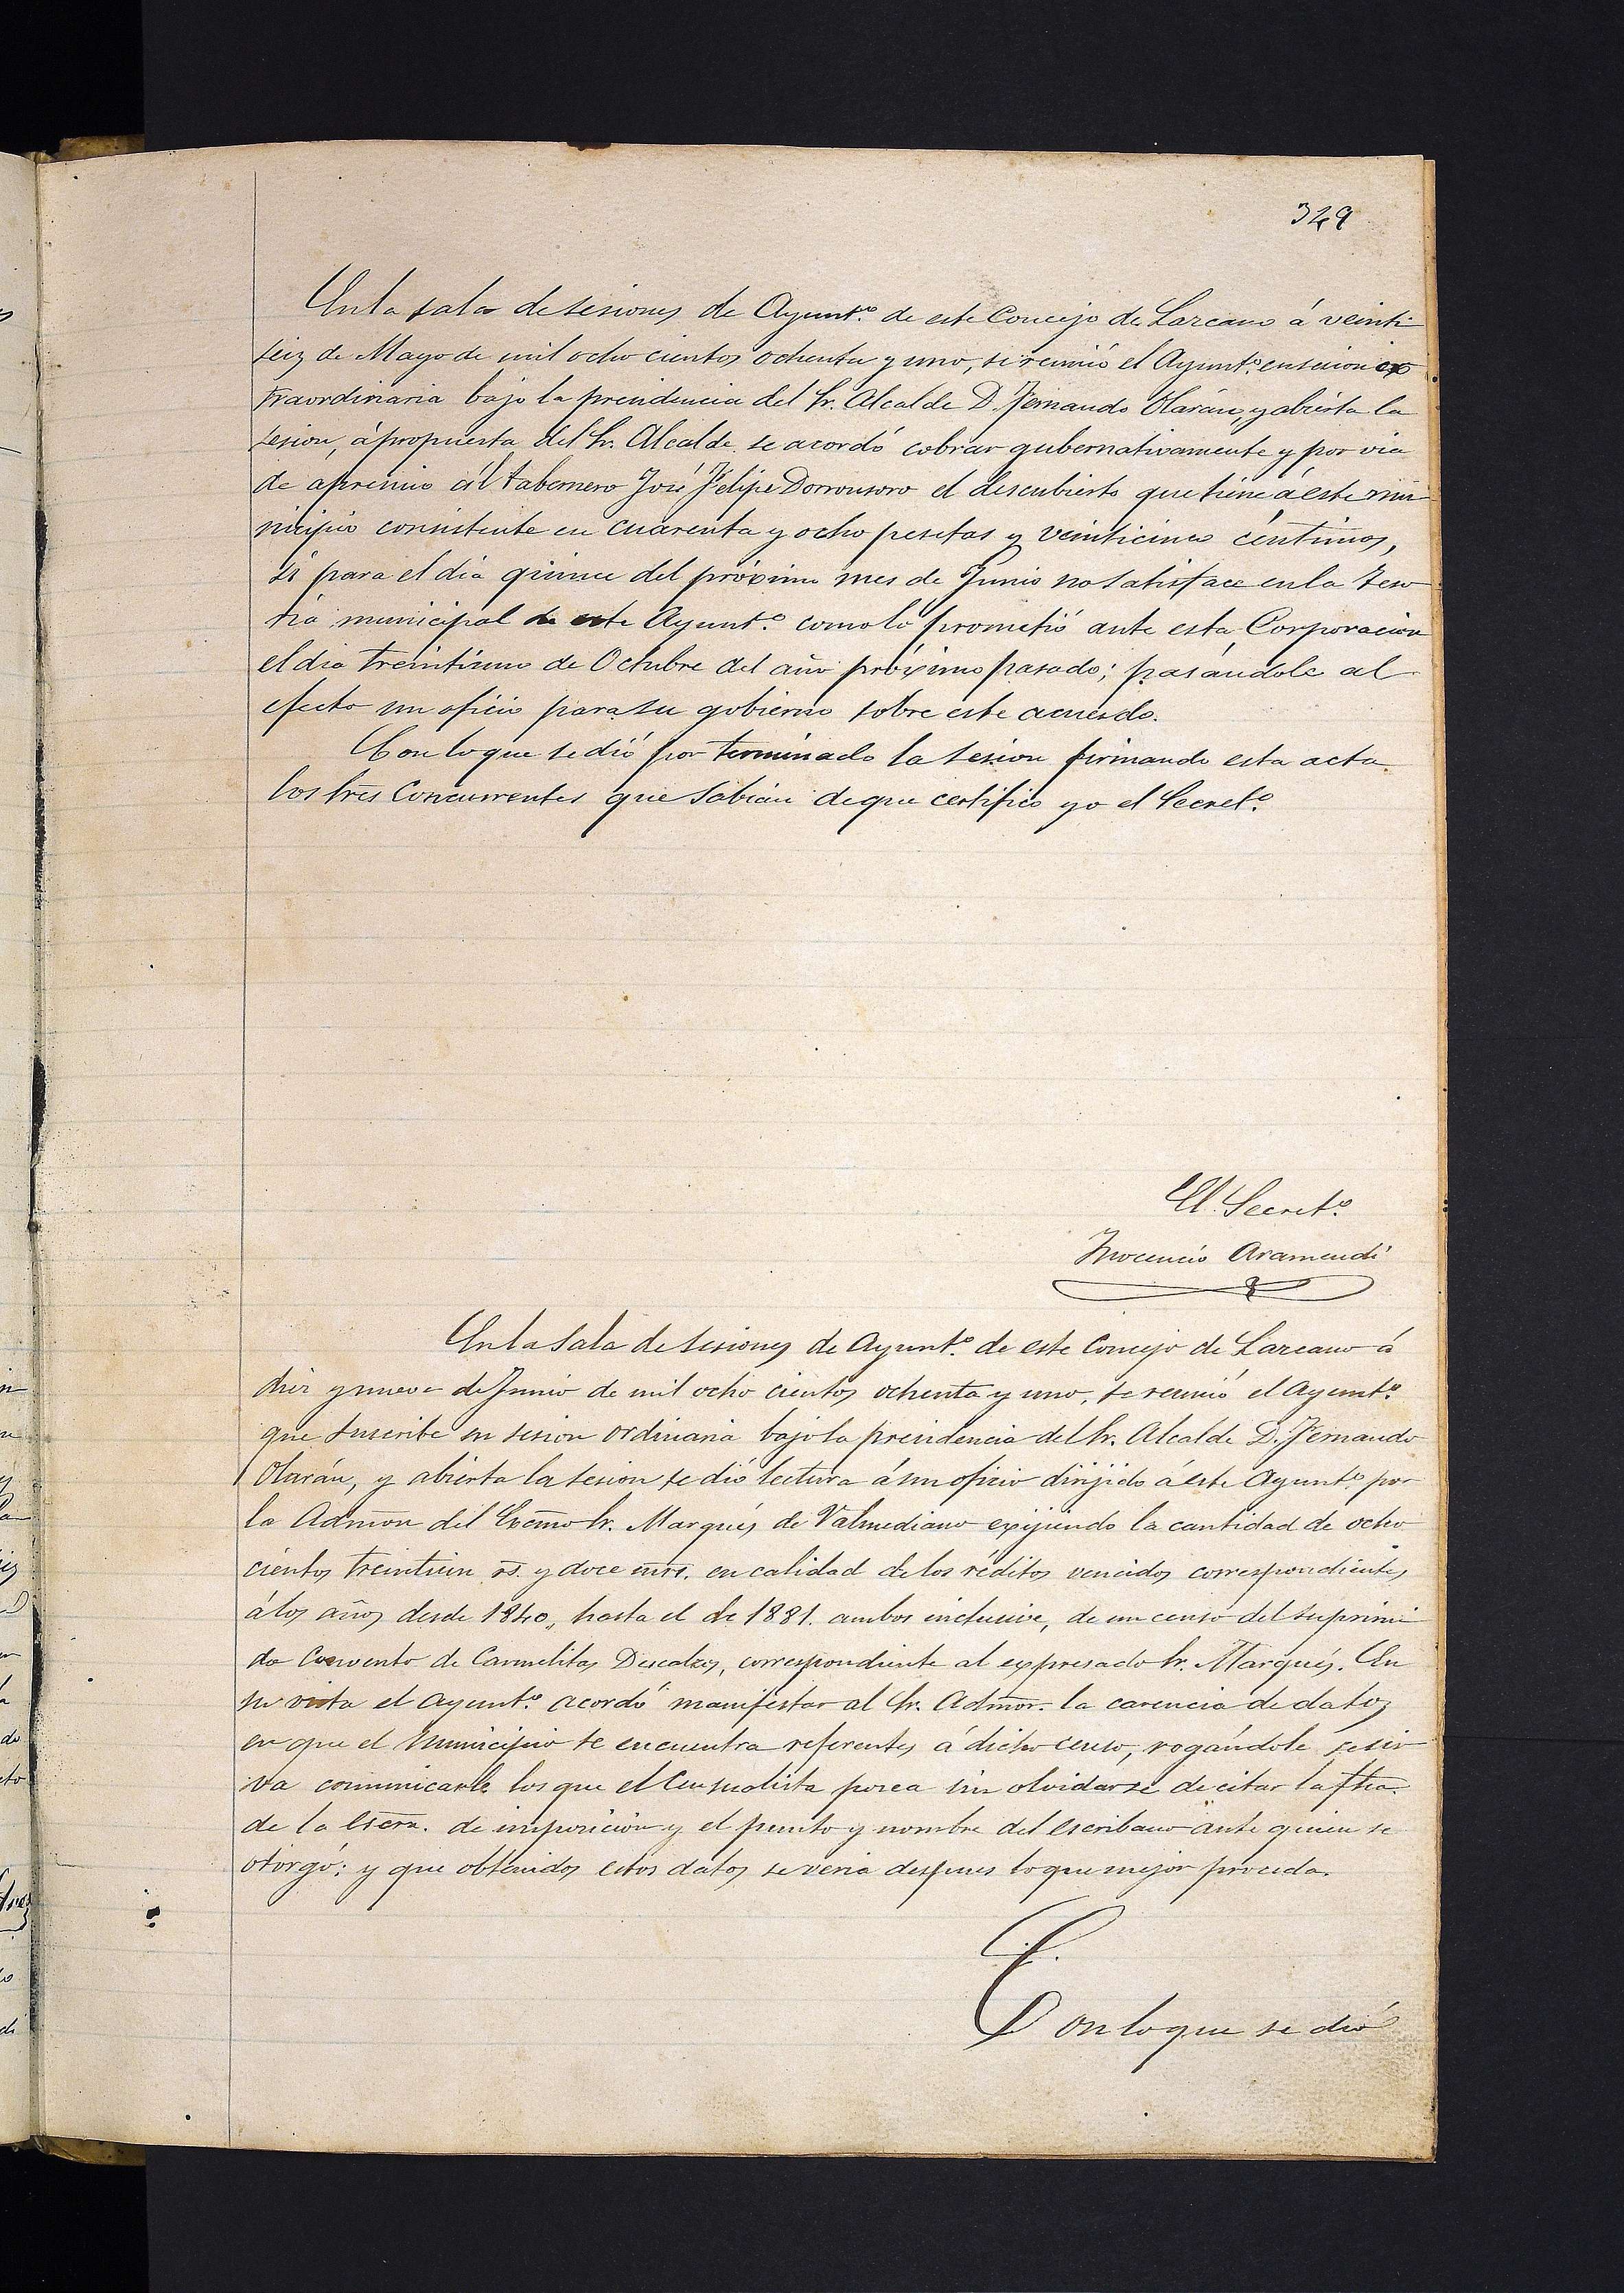 349
En la sala de sesiones de Ayunt.º de este Concejo de Lazcano á veinti
seiz de Mayo de mil ocho cientos ochenta y uno, se reunió el Ayunt.º en sesion ex
traordinaria bajo la presidencia del Sr. Alcalde D. Fernando Olarán, y abierta la
sesion, á propuesta del Sr. Alcalde se acordó cobrar gubernativamente y por via
de apremio ál tabernero José Felipe Dorronsoro el descubierto que tiene á este mu
nicipio consistente en cuarenta y ocho pesetas y veinticinco céntimos,
si para el dia quince del próximo mes de Junio no satisface en la Teso
ria municipal de este Ayunt.º como lo prometió ante esta Corporacion
el dia treintiuno de Octubre del año próximo pasado; pasándole al
efecto un oficio para su gobierno sobre este acuerdo.
Con lo que se dió por terminado la sesion firmando esta acta
los sres Concurrentes que Sabian de que certifico yo el Secret.º
El Secret.º
Inocencio Aramendi
En la Sala de sesiones de Ayunt.º de este Concejo de Lazcano á
diez y nueve de Junio de mil ocho cientos ochenta y uno, se reunió el Ayunt.º
que suscribe en sesion ordinaria bajo la presidencia del Sr. Alcalde D. Fernando
Olarán, y abierta la sesion se dió lectura á un oficio dirijido á este Ayunt.º por
la Admon del Excmo Sr. Marqués de Valmediano exijiendo la cantidad de ocho
cientos treintiun rs. y doce mrs. en calidad de los réditos vencidos correspondientes
á los años desde 1840, hasta el de 1881. ambos inclusive, de un censo del suprimi
do Convento de Carmelitas Descalzos, correspondiente al expresado Sr. Marqués. En
su vista el Ayunt.º acordó manifestar al Sr. Admor. la carencia de datoz
en que el Municipio se encuentra referentes á dicho censo, rogándole se sir
va comunicarle los que el Censualista posea sin olvidarse de citar la fha.
de la escra. de imposicion y el punto y nombre del escribano ante quien se
otorgó; y que obtenidos estos datos se veria despues lo que mejor proceda.
Con lo que se dió